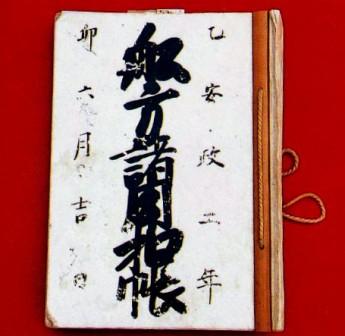 乙安政二年
船方諸用扣帳
卯六月吉日